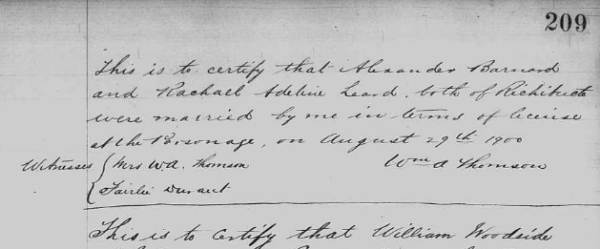 209
This is to certify that Alexander Barnard
and Rachael Adeline Leard. both of Richibucto
were married by me in terms of license
at the Parsonage, on August 29th 1900
Witnesses { Mrs W.A. Thomson Wm A Thomson
Fairlie Durant
This is to certify that William Woodside